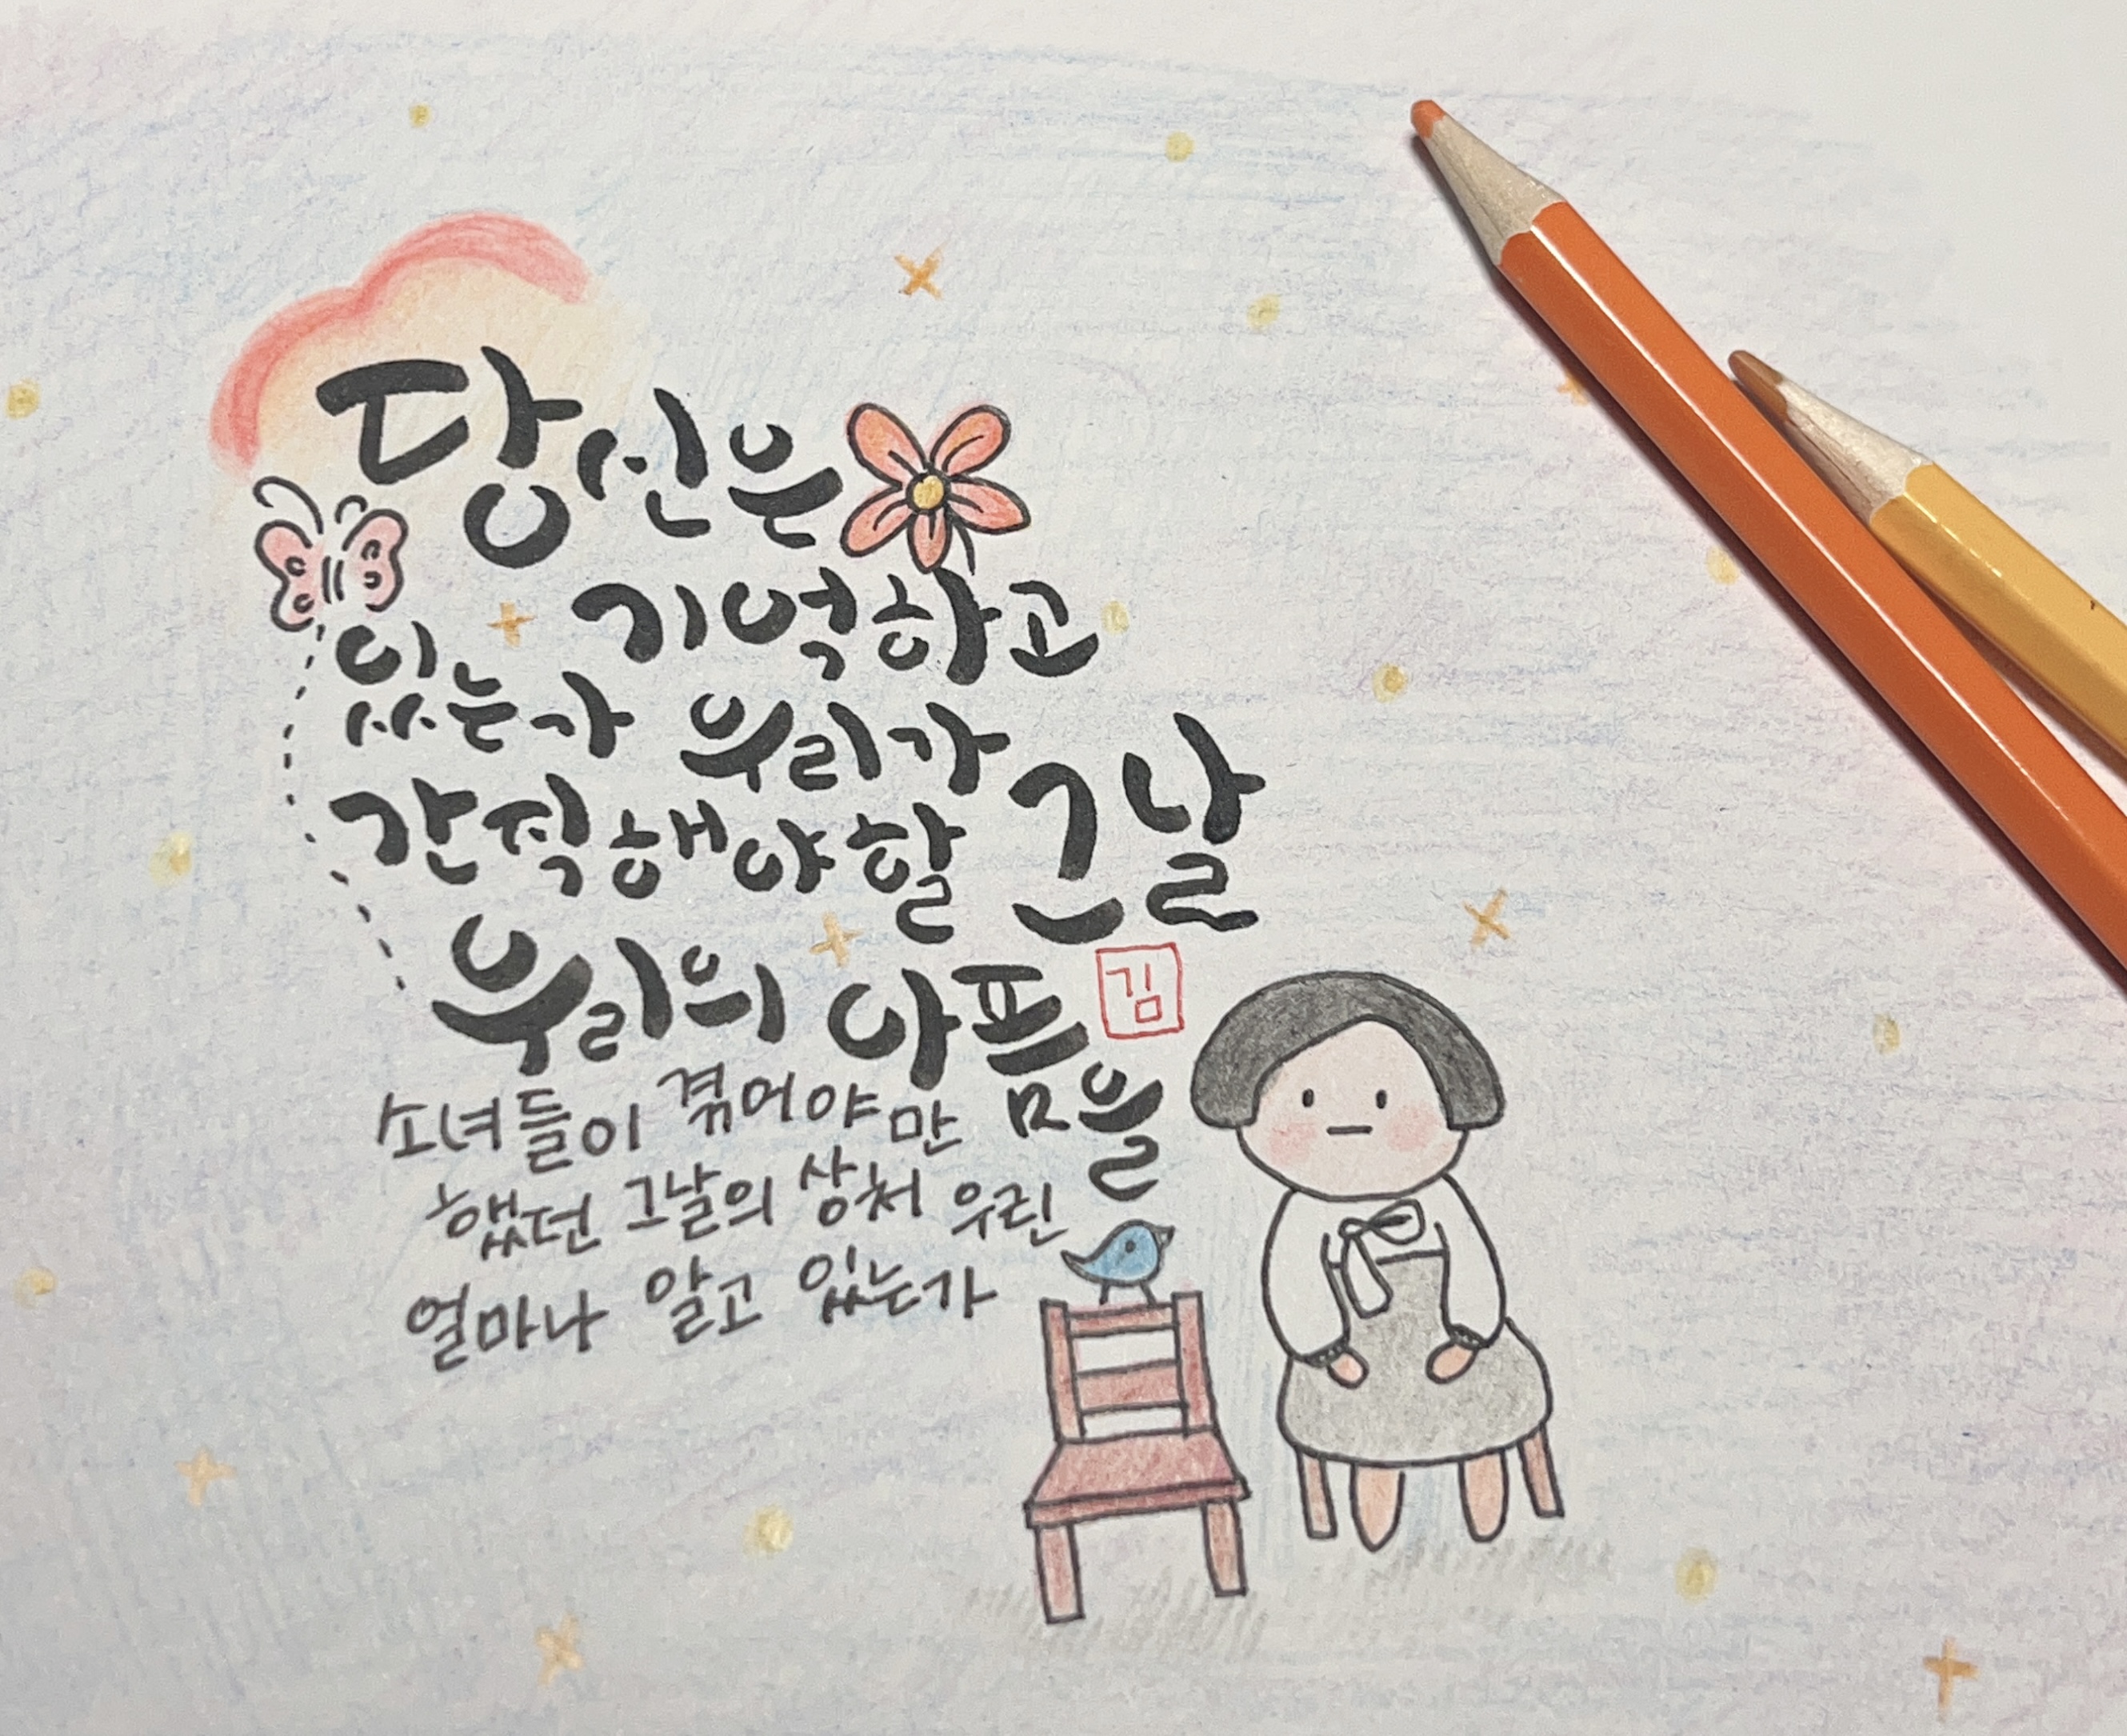 당신은
기억하고
있는가 우리가
간직해야할 그날
우리의 아픔을
김
소녀들이 겪어야만
했던 그날의 상처 우린
얼마나 알고 있는가